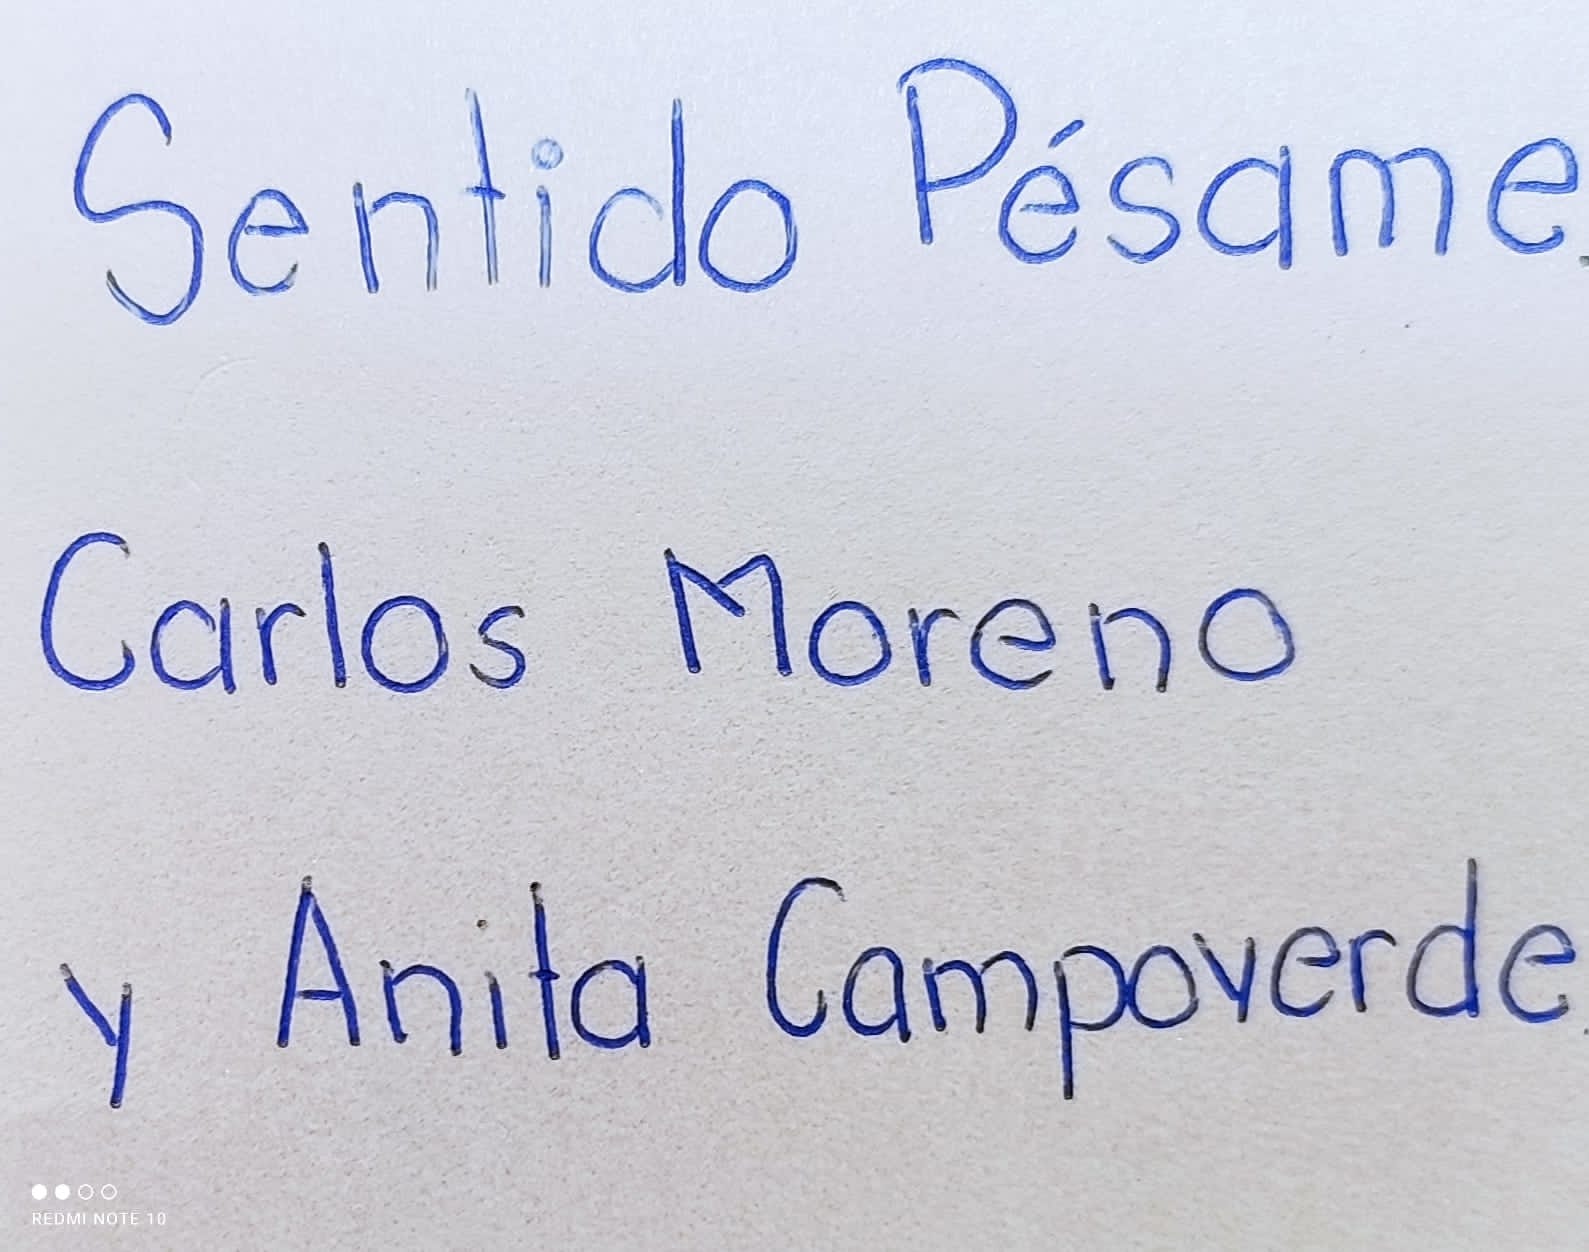 Sentido Pésame.
Carlos Moreno
y Anita Campoverde.
REDMI NOTE 10